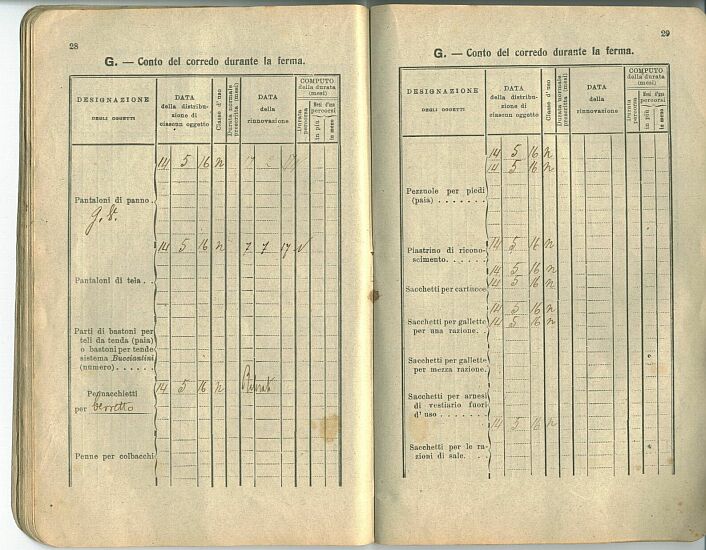 28
G. — Conto del corredo durante la ferma.
DESIGNAZIONE
DEGLI OGGETTI
DATA
della distribu-
zione di
ciascun oggetto
Classe d'uso
Durata normale
prescritta (mesi)
DATA
della
rinnovazione
COMPUTO
della durata
(mesi)
Durata
percorsa
Mesi d'uso
percorsi
in più
in meno
14 5 16 n 17
Pantaloni di panno .
g. v.
14 5 16 n 7 7 17 N
Pantaloni di tela . .
Parti di bastoni per
teli da tenda (paia)
o bastoni per tende
sistema Bucciantini
(numero) . . . . . .
14 5 16 n
Pennacchietti
per berretto
Penne per colbacchi
29
G. — Conto del corredo durante la ferma.
DESIGNAZIONE
DEGLI OGGETTI
DATA
della distribu-
zione di
ciascun oggetto
Classe d'uso
Durata normale
prescritta (mesi)
DATA
della
rinnovazione
COMPUTO
della durata
(mesi)
Durata
percorsa
Mesi d'uso
percorsi
in più
in meno
14 5 16 n
14 5 16 n
Pezzuole per piedi
(paia) . . . . . . .
14 5 16 n
Piastrino di ricono-
scimento. . . . . .
14 5 16 n
14 5 16 n
Sacchetti per cartucce
14 5 16 n
14 5 16 n
Sacchetti per gallette
per una razione. .
Sacchetti per gallette
per mezza razione.
Sacchetti per arnesi
di vestiario fuori
d'uso . . . . . . .
14 5 16 n
Sacchetti per le ra-
zioni di sale. . . .